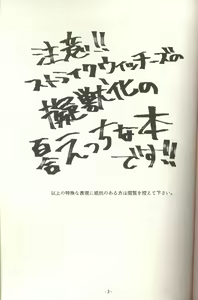 注意!!
ストライクウィッチーズの
擬獣化の
百合えっちな本
です!!
以上の特殊な表現に抵抗のある方は閲覧を控えて下さい。
-2-